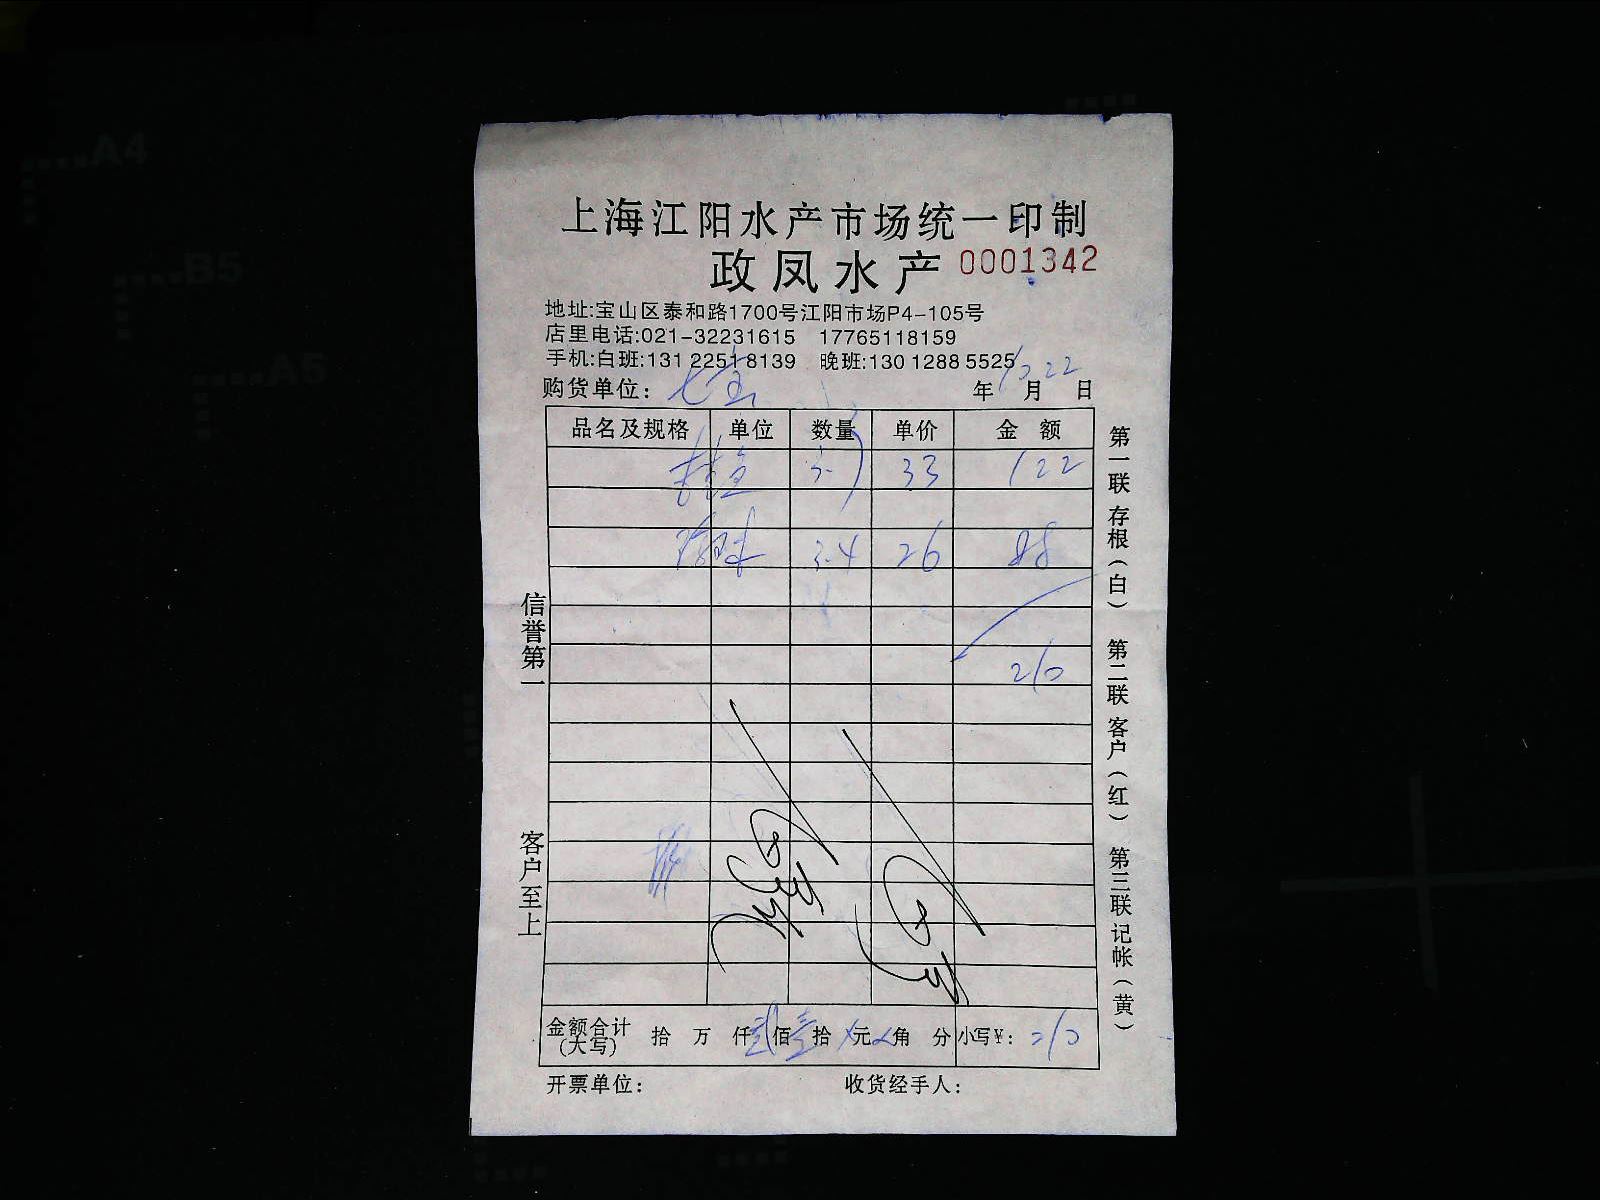 A4
B5
A5
上海江阳水产市场统一印制
政凤水产 0001342
地址:宝山区泰和路1700号江阳市场P4-105号
店里电话:021-32231615 17765118159
手机:白班:131 2251 8139 晚班:130 1288 5525
购货单位: 七宝 年 12月 22日
品名及规格 单位 数量 单价 金额
3.7 33 122
3.4 26 88
210
金额合计(大写) 拾 万 仟 贰佰 壹拾 元 角 分 小写¥: 210
开票单位: 收货经手人:
信誉第一
客户至上
第一联存根(白)
第二联客户(红)
第三联记帐(黄)